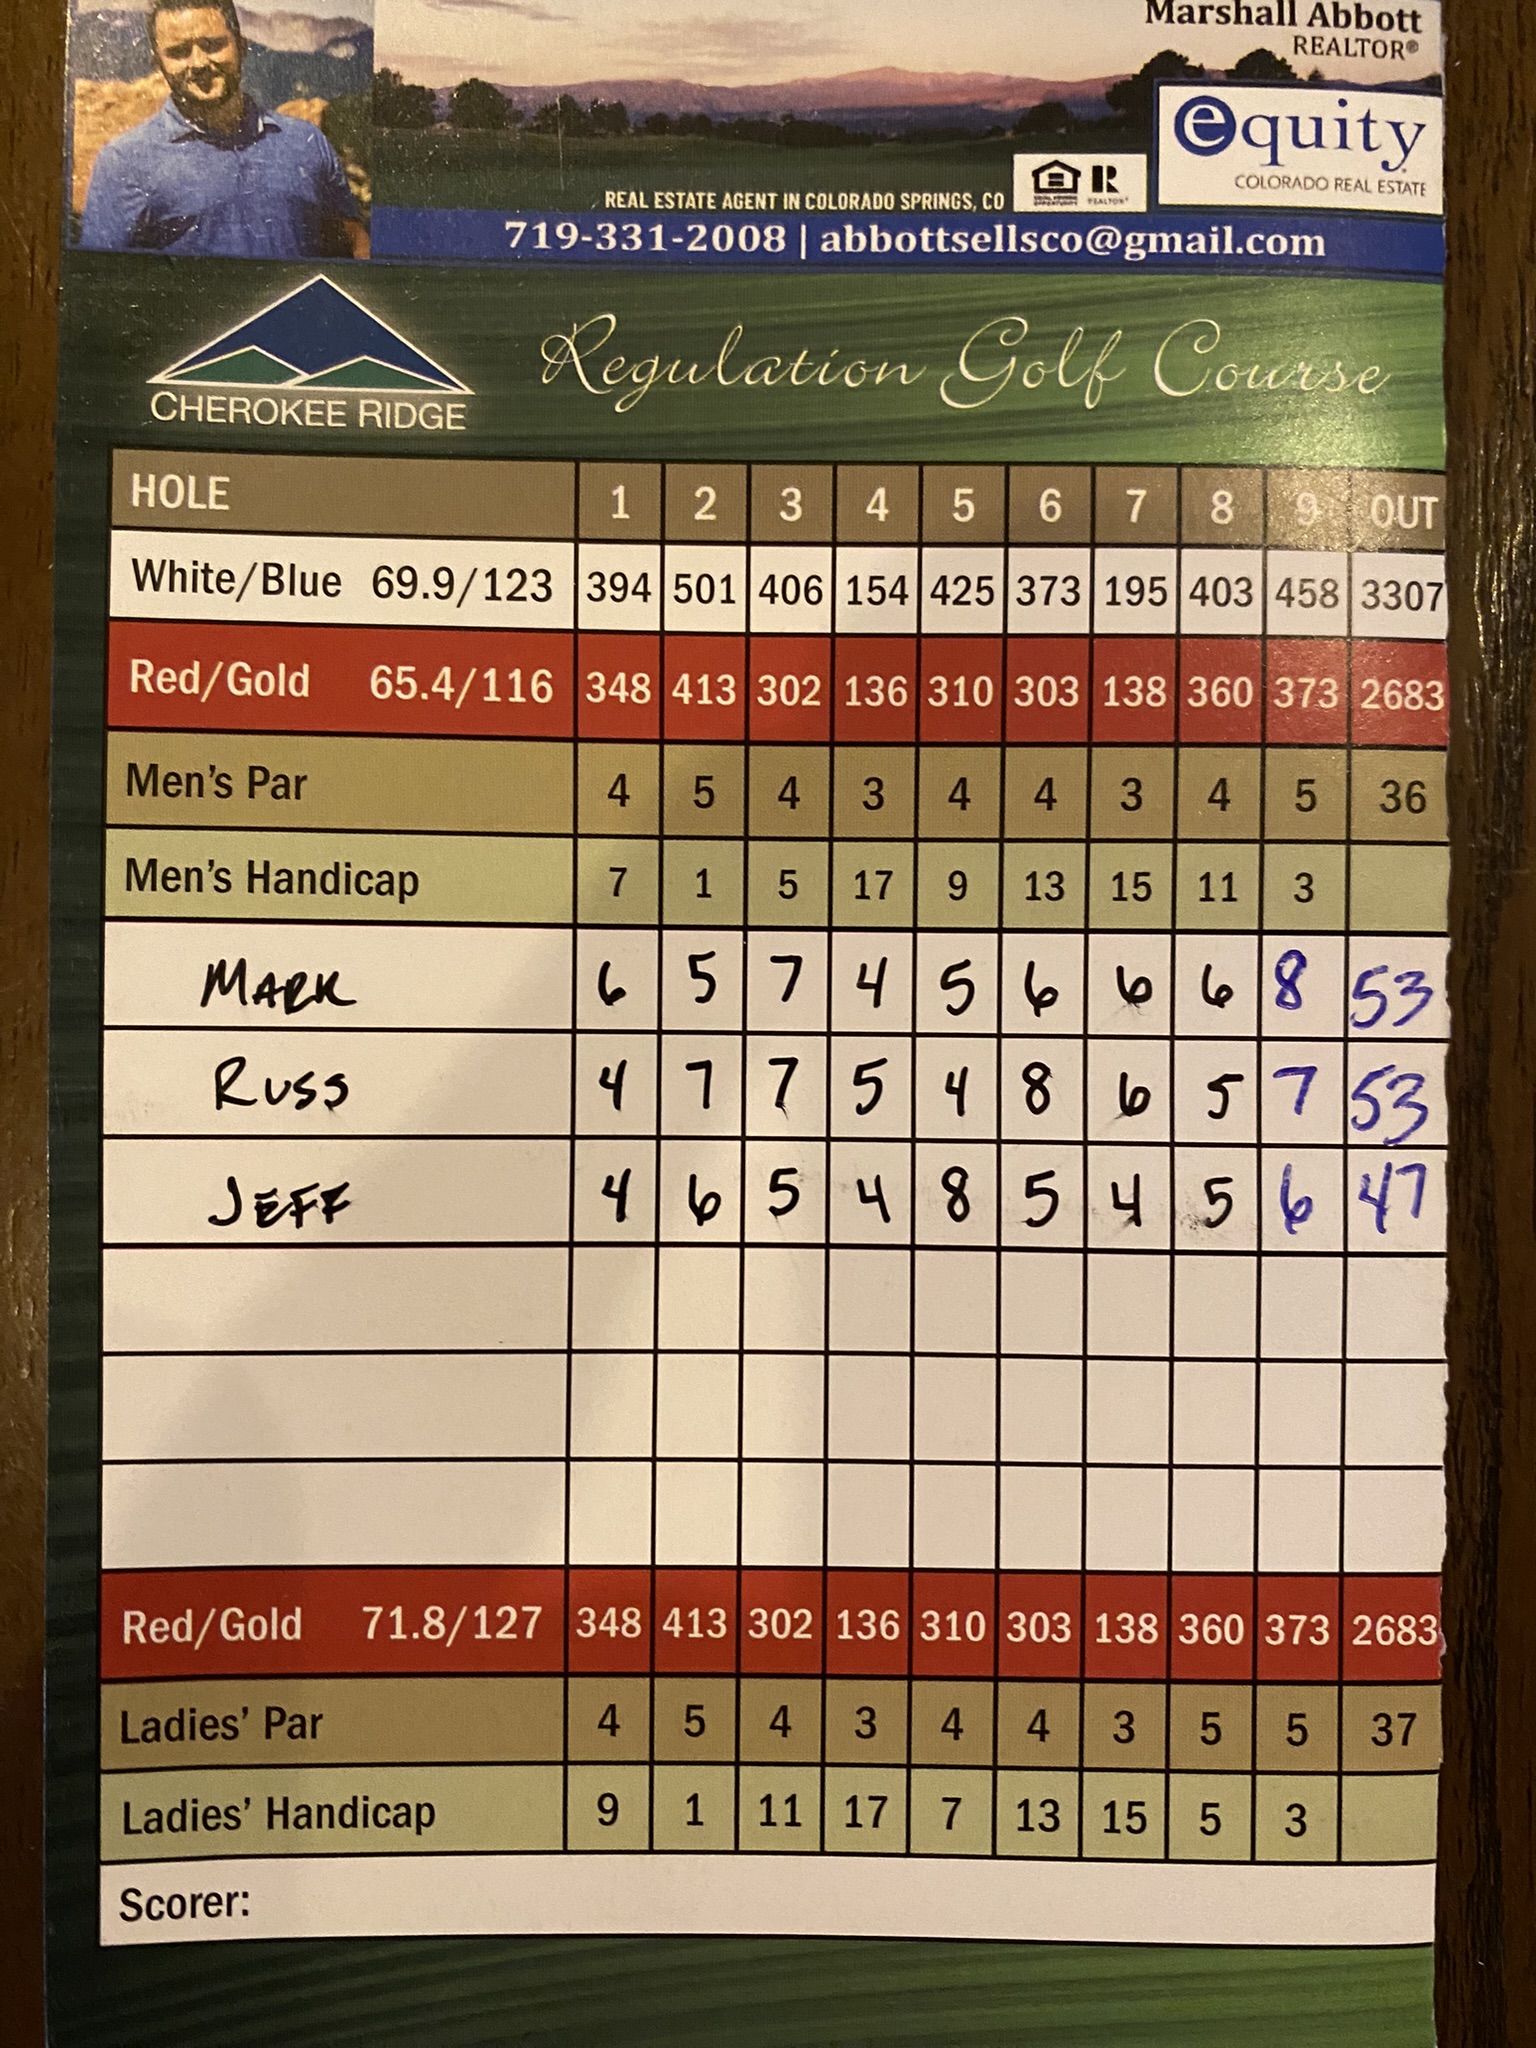 Marshall Abbott
REALTOR®
equity
COLORADO REAL ESTATE
REAL ESTATE AGENT IN COLORADO SPRINGS, CO
R
REALTOR®
719-331-2008 | abbottsellsco@gmail.com
CHEROKEE RIDGE
Regulation Golf Course
HOLE 1 2 3 4 5 6 7 8 9 OUT
White/Blue 69.9/123 394 501 406 154 425 373 195 403 458 3307
Red/Gold 65.4/116 348 413 302 136 310 303 138 360 373 2683
Men's Par 4 5 4 3 4 4 3 4 5 36
Men's Handicap 7 1 5 17 9 13 15 11 3
MARK 6 5 7 4 5 6 6 6 8 53
RUSS 4 7 7 5 4 8 6 5 7 53
JEFF 4 6 5 4 8 5 4 5 6 47
Red/Gold 71.8/127 348 413 302 136 310 303 138 360 373 2683
Ladies' Par 4 5 4 3 4 4 3 5 5 37
Ladies' Handicap 9 1 11 17 7 13 15 5 3
Scorer: